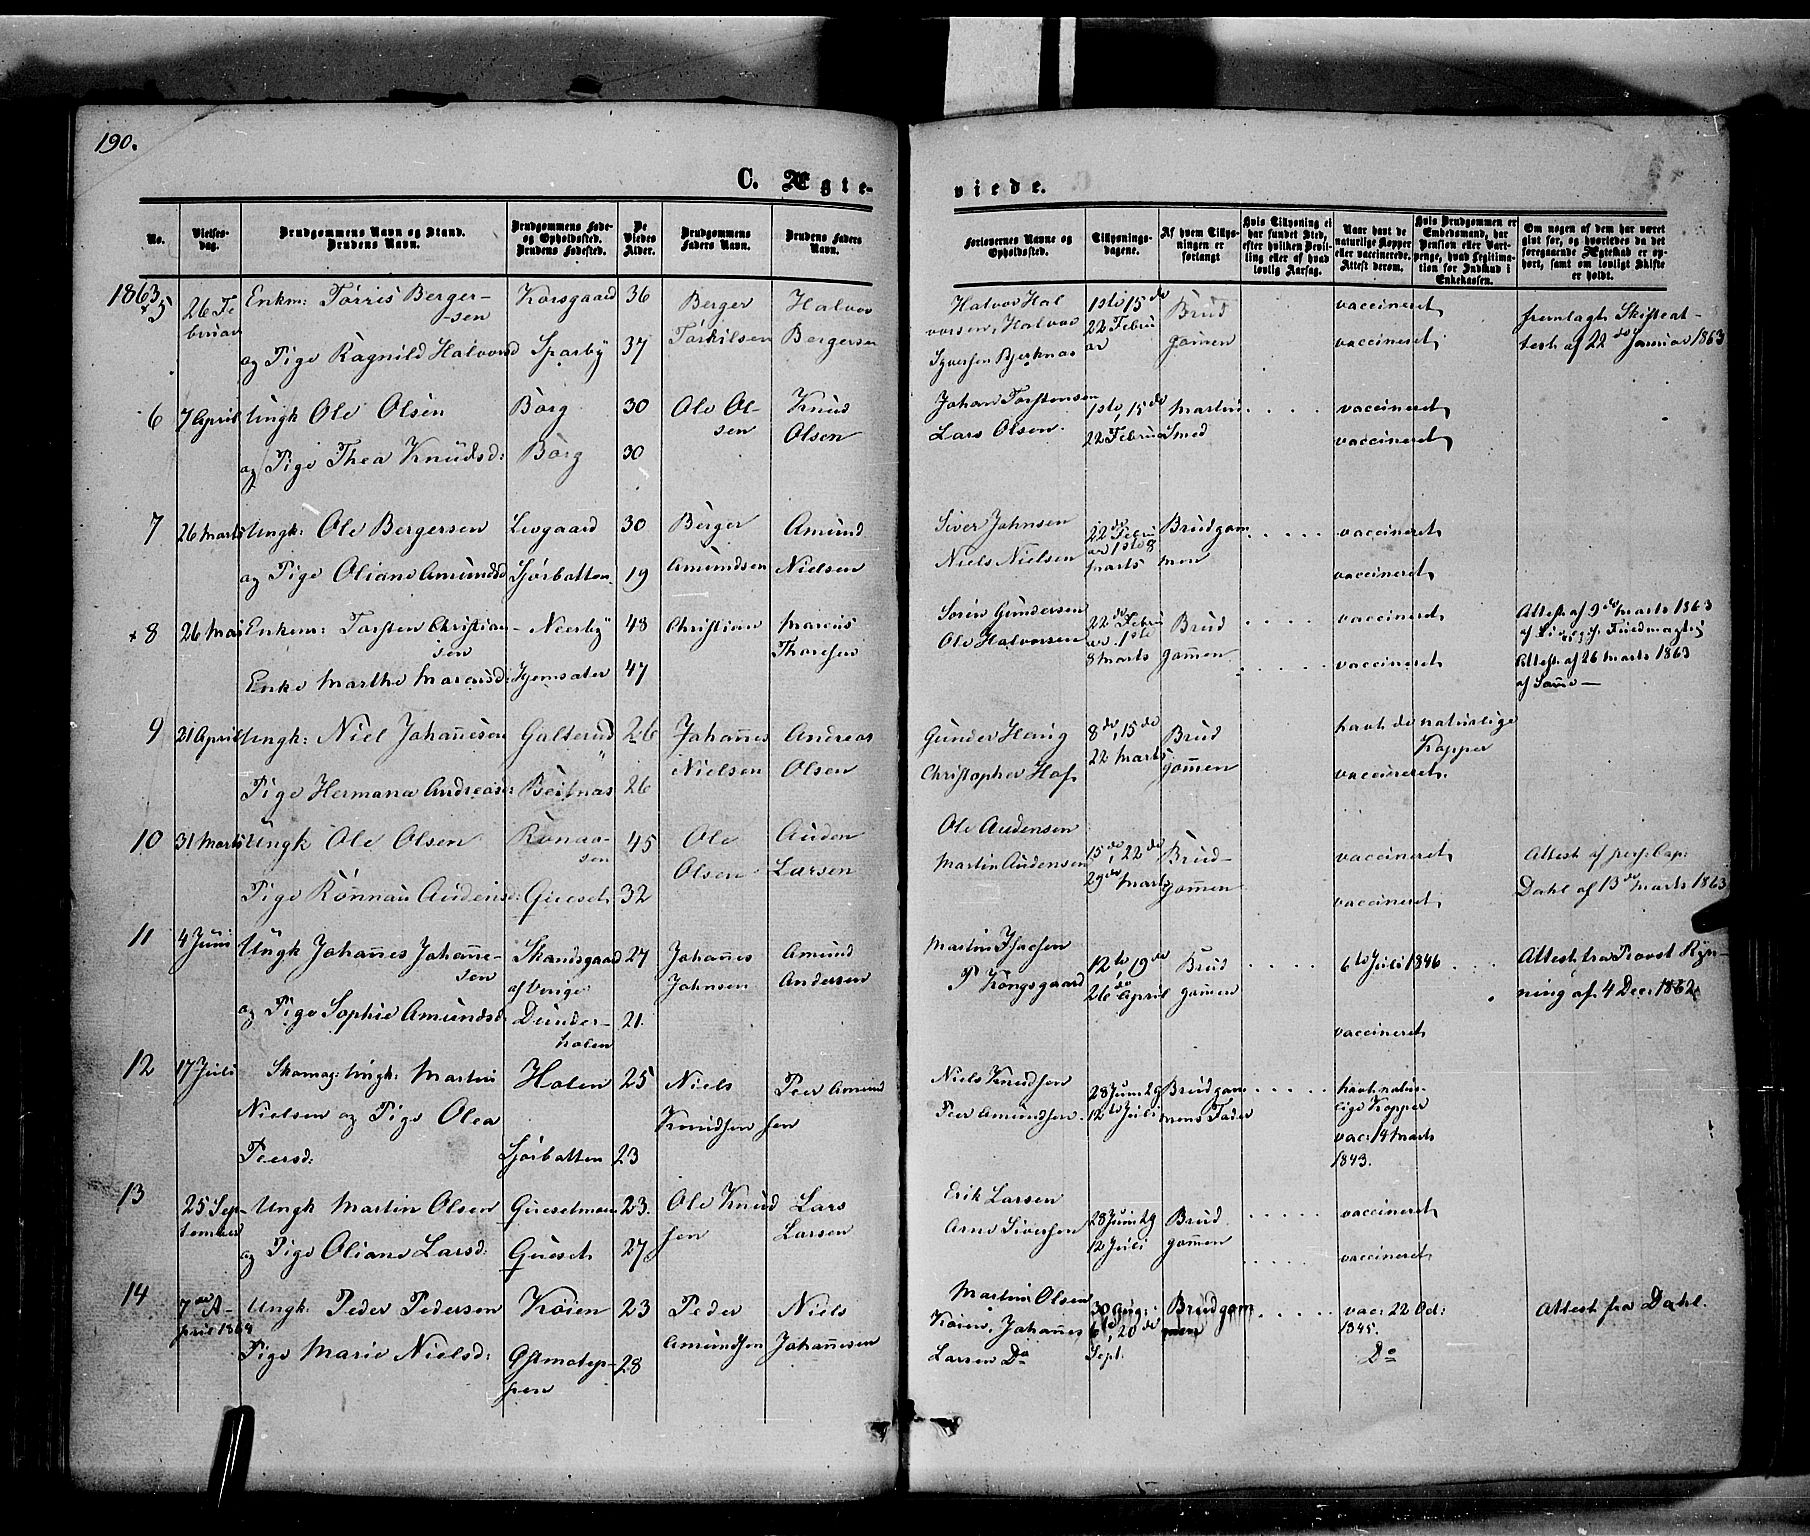 190.
C. Ægte-
viede.
No.
Vielses-
dag.
Brudgommens Navn og Stand.
Brudens Navn.
Brudgommens Føde-
og Opholdssted.
Brudens Fødested.
De
Viedes
Alder.
Brudgommens
Faders Navn.
Brudens Faders
Navn.
Forlovernes Navne og
Opholdssted.
Tillysnings-
dagene.
Af hvem Tillys-
ningen er
forlangt
Hvis Tillysning ei
har fundet Sted,
efter hvilken Bevil-
ling eller af hvad
lovlig Aarsag.
Naar havt de
naturlige Kopper
eller vaccinerede.
Attest derom.
Hvis Brudgommen er
Embedsmand, har
Pension eller Vart-
penge, hvad Legitima-
tion for Indskud i
Enkekassen.
Om nogen af dem har været
gift før, og hvorledes da det
foregaaende Ægteskab er op-
hørt, samt om lovligt Skifte
er holdt.
1863
+5
26 Fe
bruar
Enkm: Torris Berger-
sen
og Pige Ragnild Halvorsd
Korsgaard
Sparby
36
37
Berger
Torkilsen
Halvor
Bergersen
Halvor Hal
vorsen, Halvor
Syversen Bjerknæs
1ste, 15de
22 Febru
ar
Brud
gomen
vaccineret
vaccineret
fremlagt Skifteat-
test af 22de Januar 1863
6
7 April
Ungk Ole Olsen
og Pige Thea Knudsd:
Borg
Borg
30
30
Ole Ol-
sen
Knud
Olsen
Johan Torstensen
Lars Olsen
1ste, 15de
22 Februar
Martin
Smed
vaccineret
vaccineret
7
26 Marts
Ungk: Ole Bergersen
og Pige Oliane Amundsd
Levgaard
Sjørbotten
30
19
Berger
Amundsen
Amund
Nielsen
Siver Johnsen
Niels Nielsen
22de Febru
ar 1ste 8
Marts
Brudgom
men
vaccineret
vaccineret
+ 8
26 Mar
Enkem: Torsten Christian-
sen
Enke Marthe Marcusd:
Neerby
Hjemsæter
48
47
Christian
Marcus
Thoresen
Soren Gundersen
Ole Halvorsen
22de Febru
ar. 1ste
8 Marts
Brud
gomen
vaccineret
vaccineret
Attest af 9de Marts 1863
Attest af 26 Marts 1863
af Samme
9
21 April
Ungk: Niel Johannesen
Pige Hermana Andreasd:
Galterud
Beitnæs
26
26
Johannes
Nielsen
Andreas
Olsen
Gunder Haug
Christopher Hof
8de, 15de
22 Marts
Brud
gomen
havt de naturlige
Kopper
vaccineret.
10
31 Marts
Ungk Ole Olsen
Pige Rønnau Audensd:
Ronaa-
sen
Gueset
45
32
Ole
Olsen
Auden
Larsen
Ole Audensen
Martin Audensen
15de, 22de
29de Marts
Brud-
gomen
vaccineret
vaccineret
Attest af pers: Cap:
Dahl af 13de Marts 1863
11
4 Juni
Ungk Johannes Johanne-
sen
og Pige Sophie Amundsd:
Skandsgaard
af Verige
Dunder-
holen
27
21.
Johannes
Johnsen
Amund
Andersen
Martin Isacsen
P Kongsgaard
12te, 19de
26de April
Brud
gomen
6te Juli 1846
vaccineret
Attest fra Provst Ryn-
ning af 4 Dec: 1862
12
17 Juli
Skomag: Ungk: Martin
Nielsen og Pige Olea
Peersd:
Holen
Sjørbotten
25
23
Niels
Knudsen
Peer Amund
sen
Niels Knudsen
Peer Amundsen
28 Juni 29
12te Juli
Brudgom
mens Fader
havt natur-
lige Kopper
vac: 14 Marts
1843.
13
25 Sep-
tember
Ungk Martin Olsen
og Pige Oliane Larsd:
Guesetmoen
Gueset
23.
27
Ole Knud
sen
Lars
Larsen
Erik Larsen
Arne Siversen
28 Juni 29
12 Juli
Brud
gomen
vaccineret
vaccineret
14
7de A-
pril 1864
Ungk: Peder Pedersen
Pige Marie Nielsd:
Køien
Østmotep-
pen
23
28
Peder
Amundsen
Niels
Johannesen
Martin Olsen
Køien, Johannes
Larsen Do
30 Aug:
6te, 20de
Sept.
Brudgom
men
vac: 22 Oct:
1845.
Do
Attest fra Dahl.